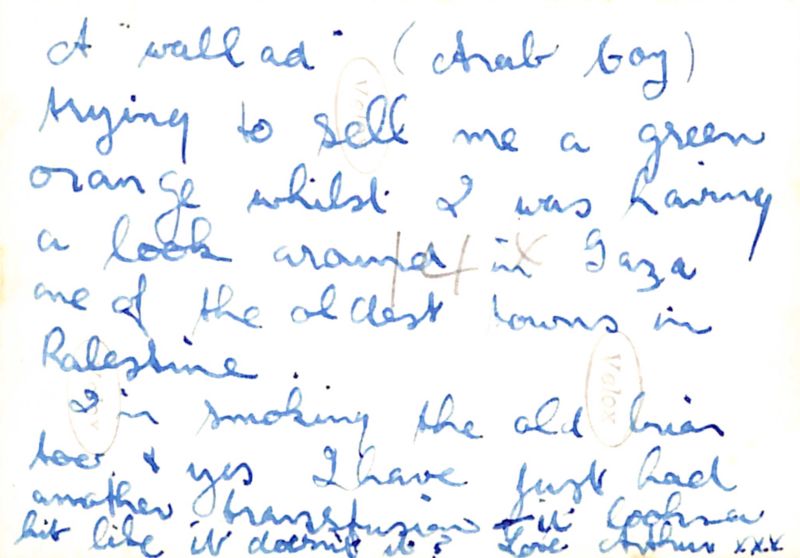 A "wallad" (Arab boy)
trying to sell me a green
orange whilst I was having
a look around in Gaza
one of the oldest towns in
Palestine.
I'm smoking the old briar
too, & yes I have just had
another transfusion - it looks a
bit like it doesn't it? Love Arthur xxx
Velox
Velox
14 x